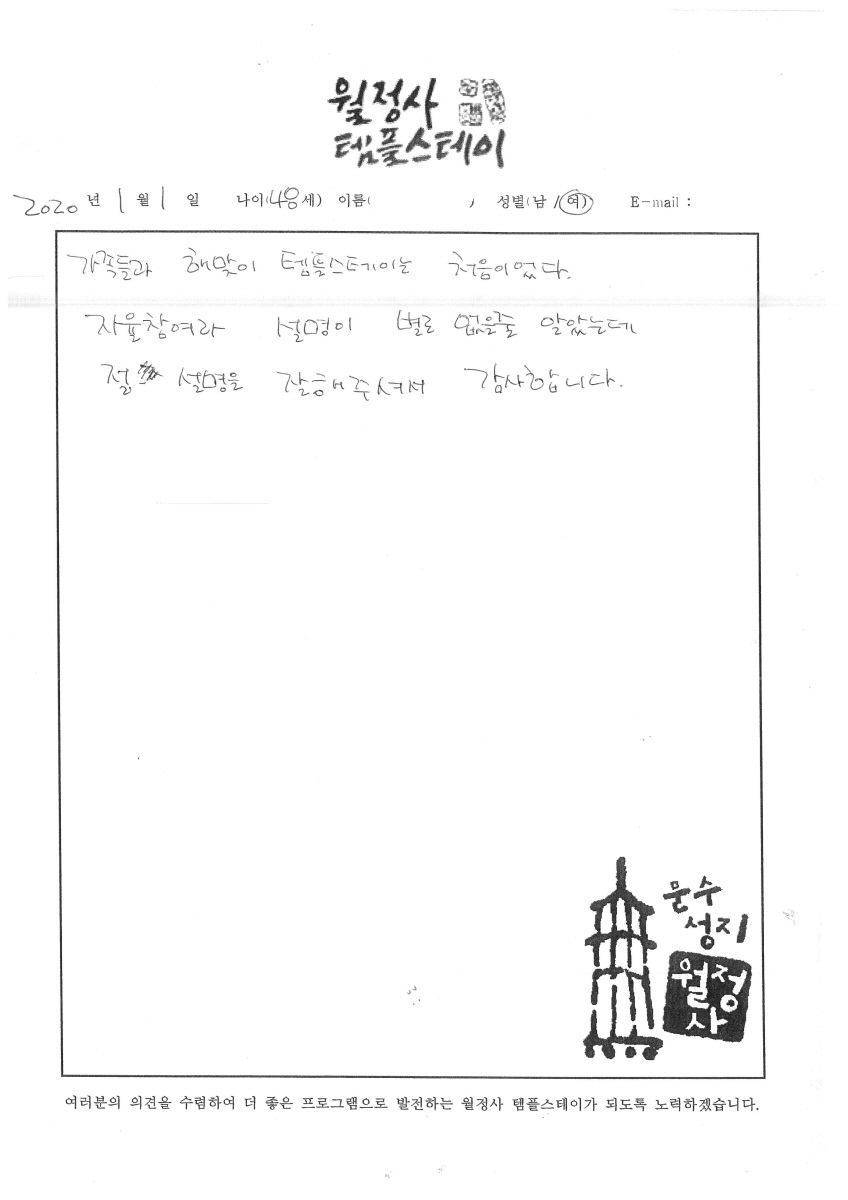 월정사
템플스테이
2020 년 1 월 1 일 나이(48세) 이름( ) 성별(남/여) E-mail :
가족들과 해맞이 템플스테이는 처음이었다.
자율참여라 설명이 별로 없을줄 알았는데
절 설명을 잘해주셔서 감사합니다.
문수
성지
월정
사
여러분의 의견을 수렴하여 더 좋은 프로그램으로 발전하는 월정사 템플스테이가 되도록 노력하겠습니다.